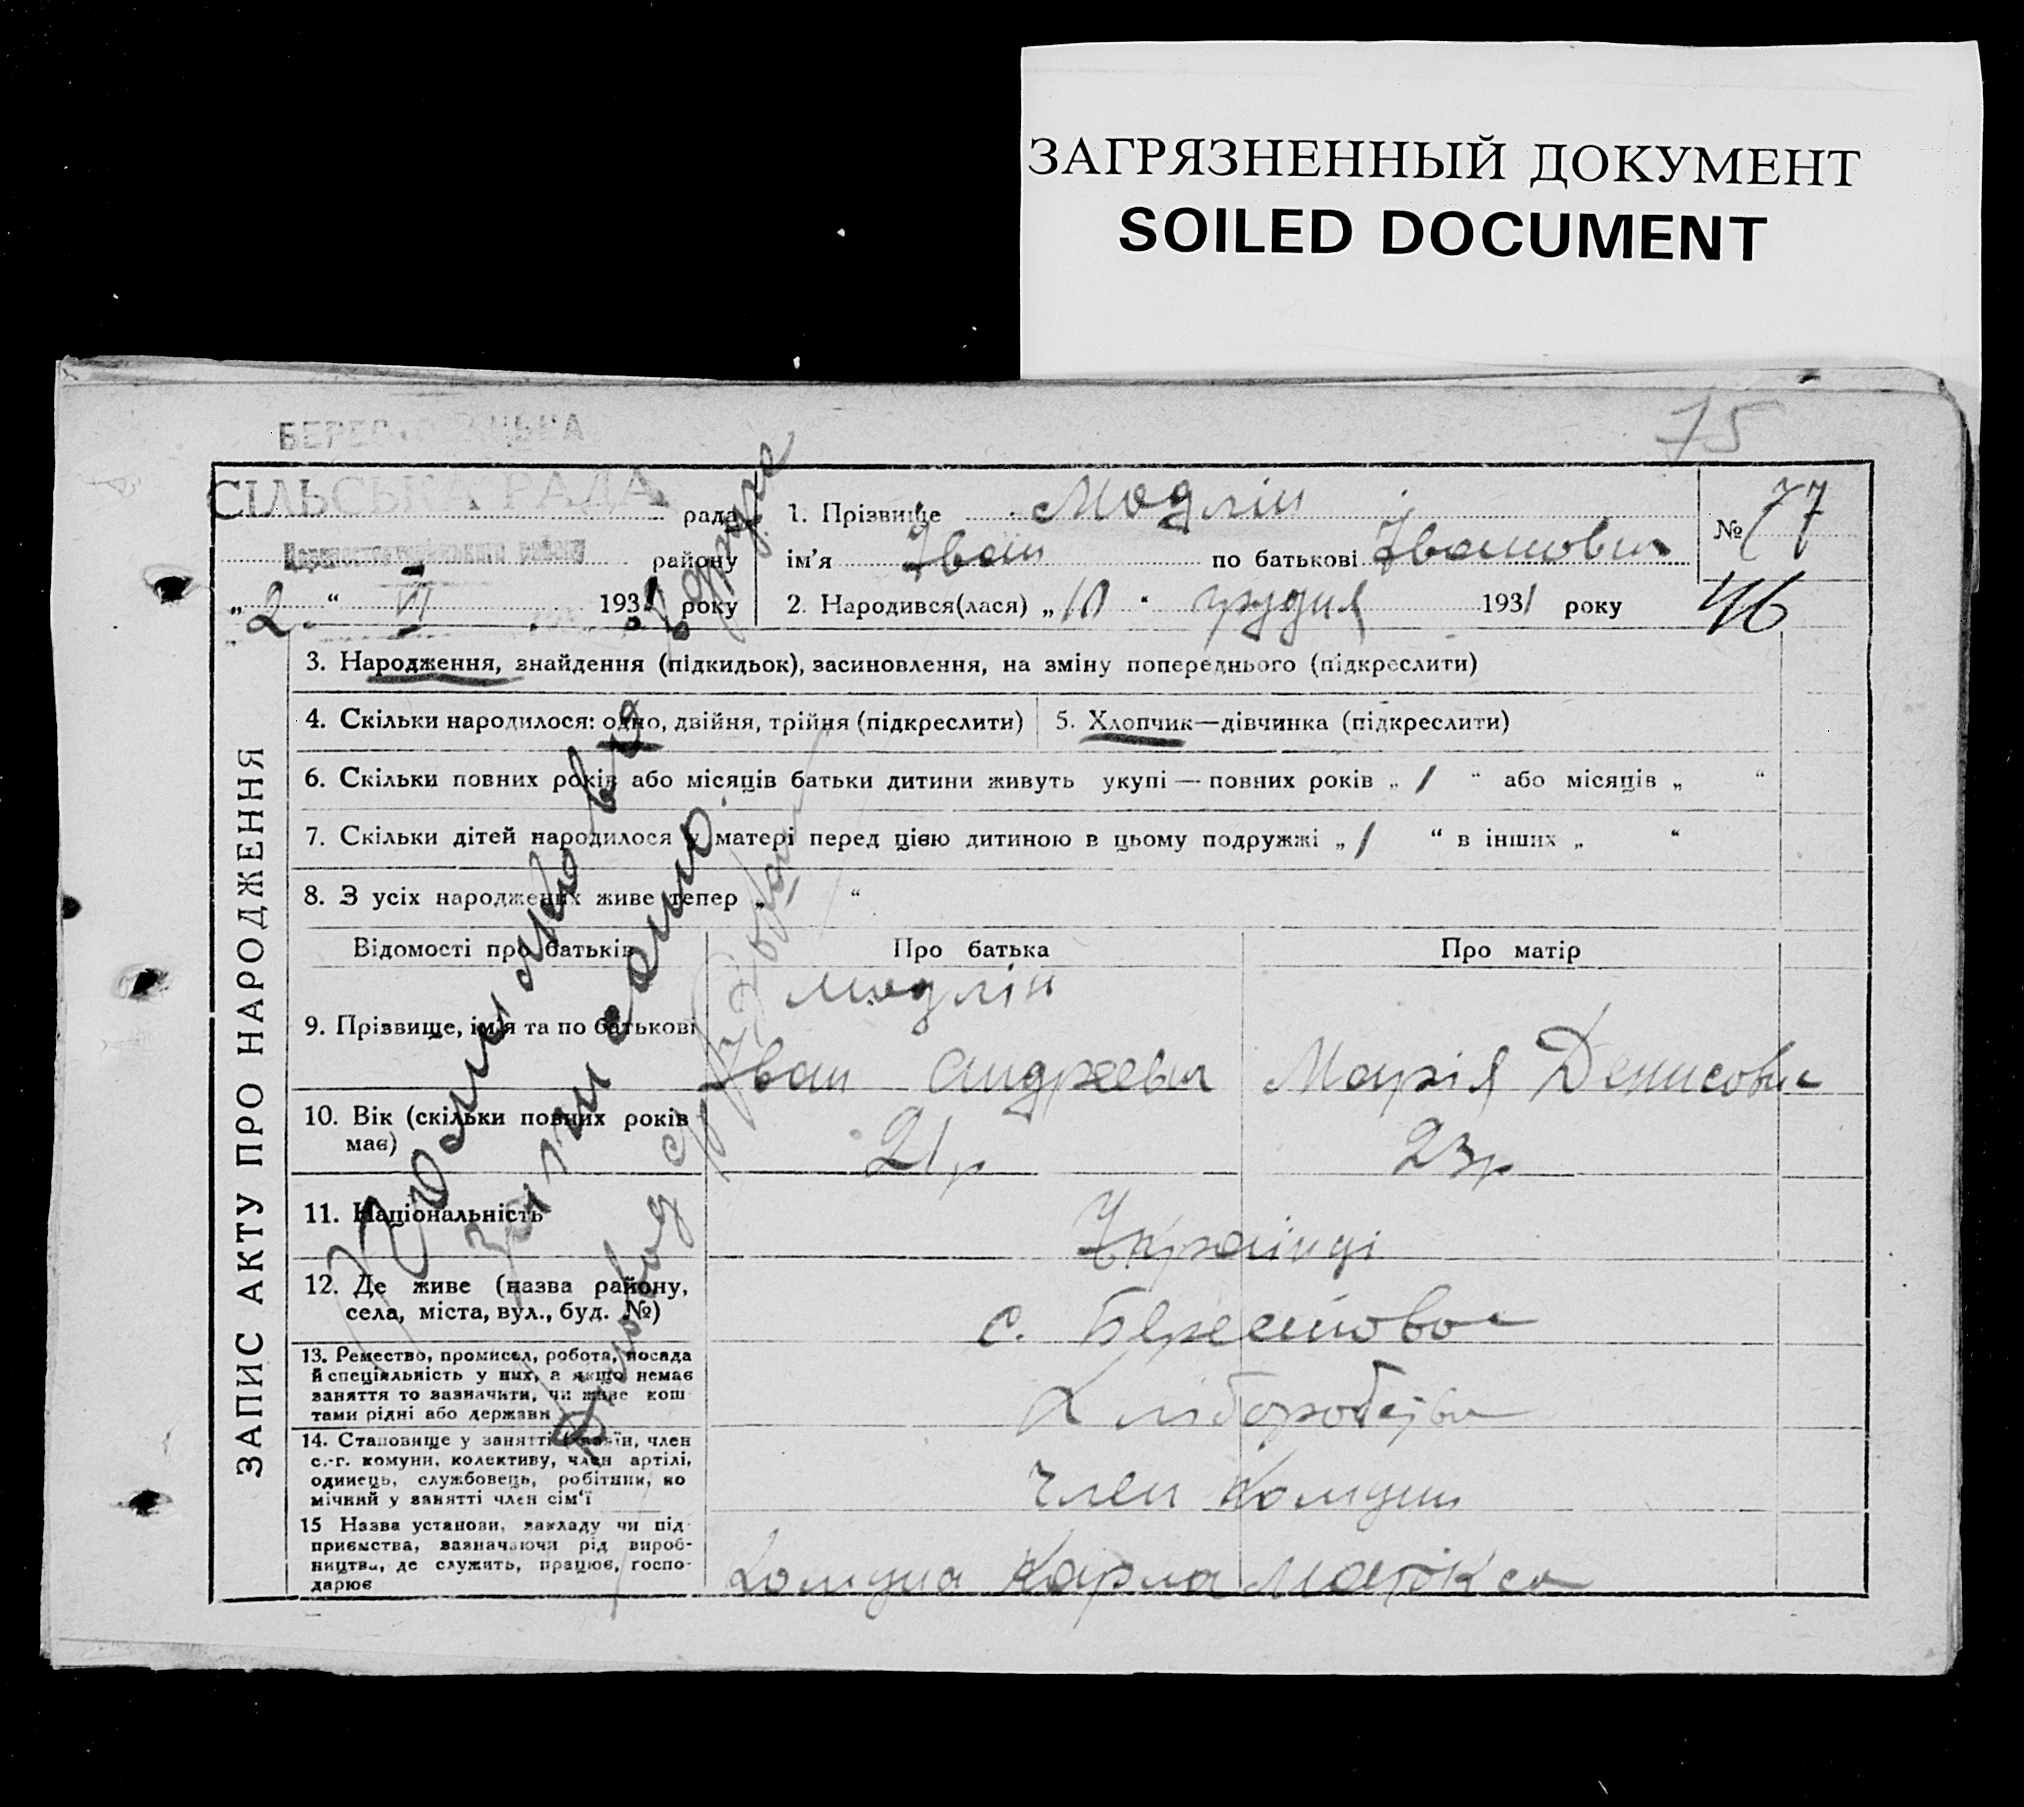 ЗАГРЯЗНЕННЫЙ ДОКУМЕНТ
SOILED DOCUMENT
75
СІЛЬСЬКА РАДА
рада
району
„2“ VI 1931 року
1. Прізвище Модлін
ім’я Іван по батькові Іванович
2. Народився(лася) „10“ грудня 1931 року
№ 77
46
3. Народження, знайдення (підкидьок), засиновлення, на зміну попереднього (підкреслити)
4. Скільки народилося: одно, двійня, трійня (підкреслити)
5. Хлопчик—дівчинка (підкреслити)
6. Скільки повних років або місяців батьки дитини живуть укупі — повних років „1“ або місяців „ “
7. Скільки дітей народилося у матері перед цією дитиною в цьому подружжі „1“ в інших „ “
8. З усіх народжених живе тепер „ “
Відомості про батьків
Про батька
Про матір
9. Прізвище, ім’я та по батькові
Модлін
Іван Андреевич
Марія Денисовна
10. Вік (скільки повних років
має)
21 р
23 р
11. Національність
Українці
12. Де живе (назва району,
села, міста, вул., буд. №)
с. Берестова
13. Ремество, промисел, робота, посада
й спеціяльність у них, а якщо немає
заняття то зазначити, чи живе кош
тами рідні або держави
Хліборобство
14. Становище у занятті хазяїн, член
с.-г. комуни, колективу, член артілі,
одинець, службовець, робітник, по
мічний у занятті член сім’ї
Член комуни
15 Назва установи, закладу чи під-
приємства, зазначаючи рід вироб-
ництва, де служить, працює, госпо-
дарює
Комуна Карла Маркса
ЗАПИС АКТУ ПРО НАРОДЖЕННЯ